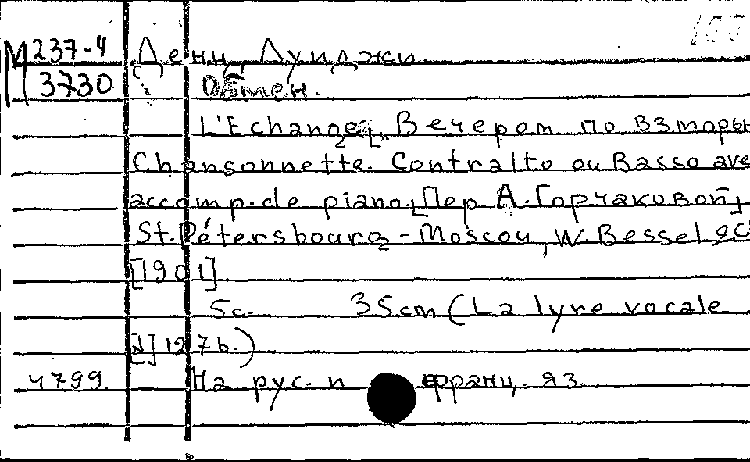 100
М 237-4 Денц, Луиджи.
3730 Обмен.
L'Echange[. Вечером по взморью
Chansonnette. Contralto ou Basso ave
accomp. de piano. [Пер А. Горчаковой]
St. Pétersbourg - Moscou, W. Bessel &C
[1901]
5с. 35cm (La lyre vocale
1276.)
4799. На рус. и франц. яз